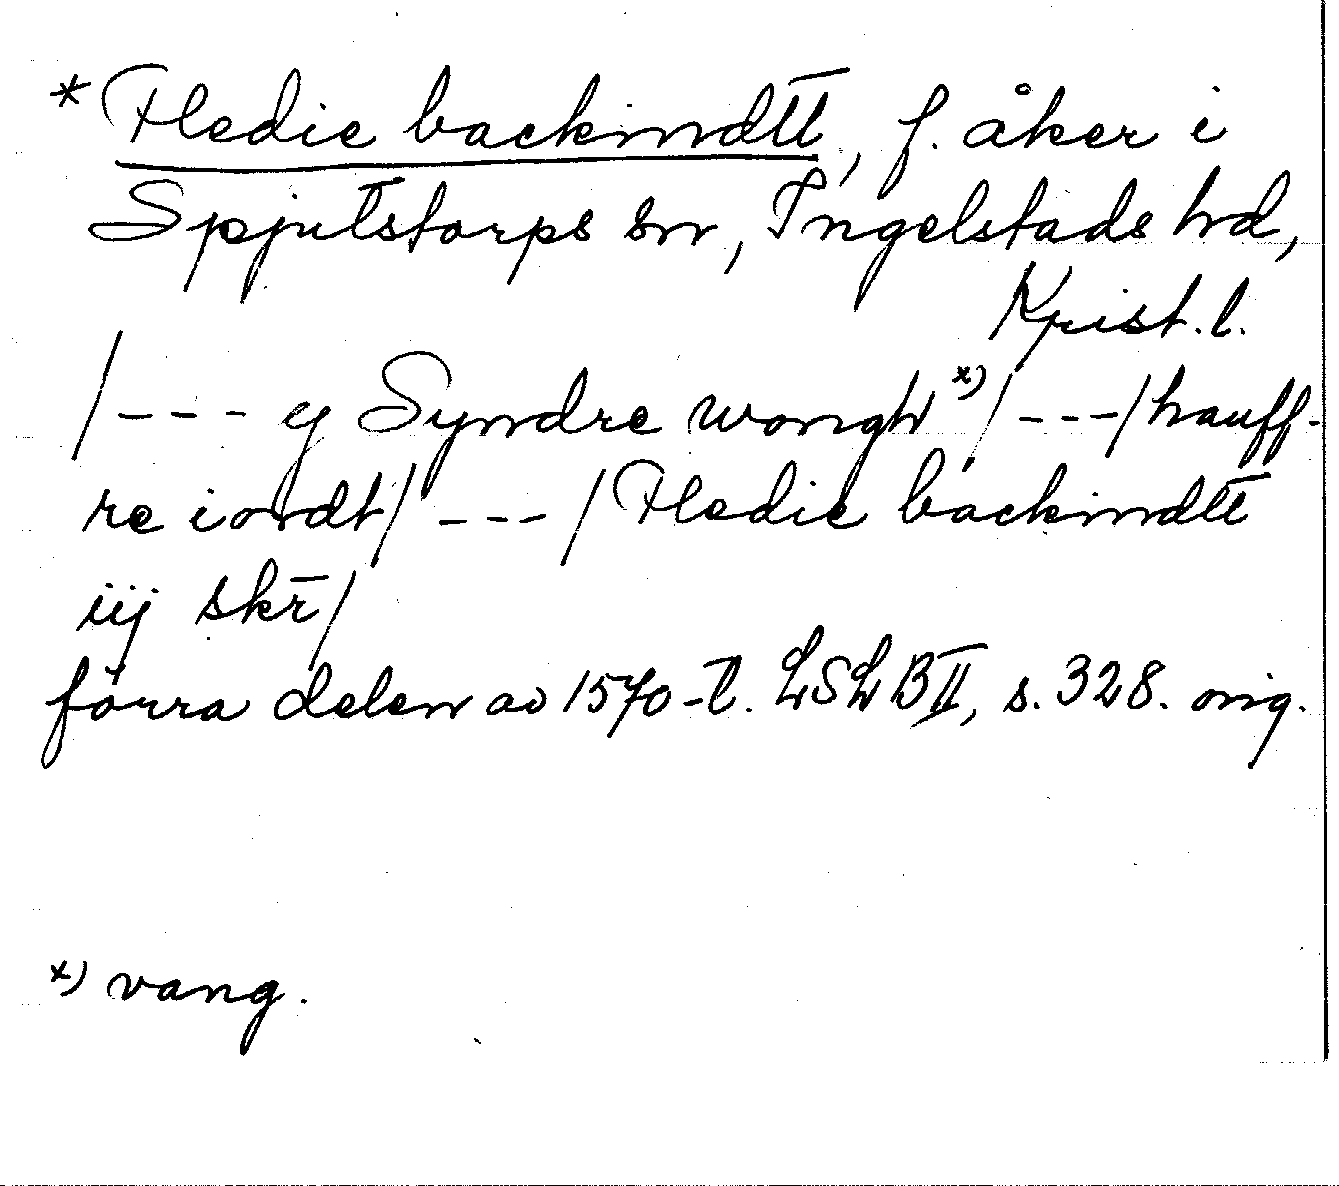 * Hedie backindtt, f. åker i
Spjutstorps sn, Ingelstads hd,
Krist. l.
/--- ij Syndre wongh x)/---/hauff-
re iordt/---/Hedie backindtt
iij skr̄/
förra delen av 1570-t. LSLB II, s. 328. orig.
x) vang.